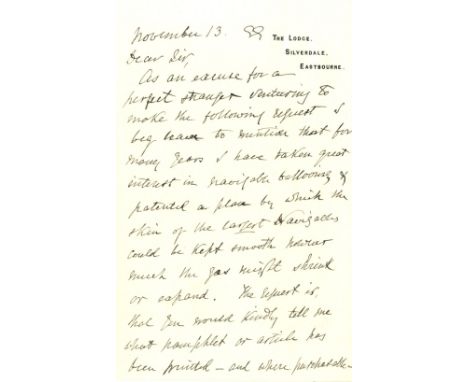 November 13.
THE LODGE,
SILVERDALE,
EASTBOURNE.
Dear Sir,
As an excuse for a
perfect stranger venturing to
make the following request I
beg leave to mention that for
many years I have taken great
interest in navigable balloons, &
patented a plan by which the
skin of the largest Navigables
could be kept smooth however
much the gas might shrink
or expand. The request is,
that you would kindly tell me
what pamphlet or article has
been printed — and where purchasable —